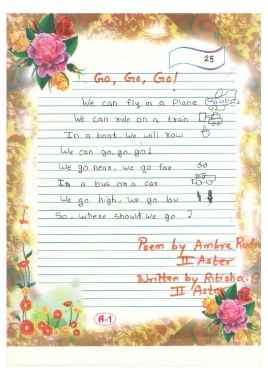 25
Go, Go, Go!
We can fly in a plane
We can ride on a train
In a boat, we will row
We can go, go, go!
We go near, we go far
Go
In a bus or a car
We go high, we go low
So, where should we go ?
Poem by Ambre Rudra
II Aster
Written by Ritisha. B
II Aster
A-1